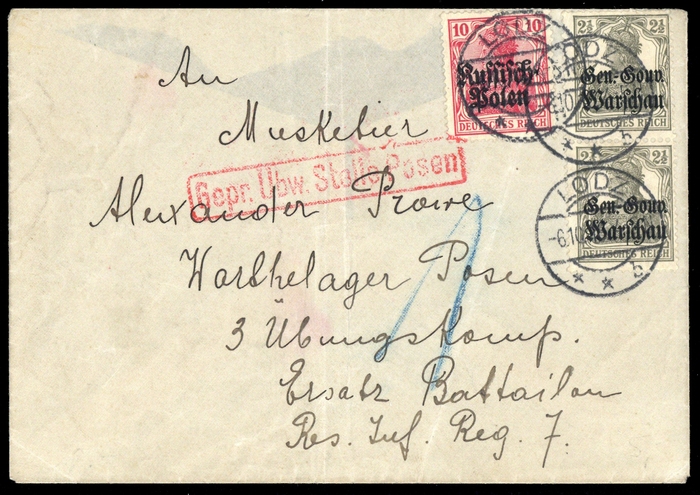 10 10
Russisch-
Polen
DEUTSCHES REICH
2½ 2½
Gen.-Gouv.
Warschau
DEUTSCHES REICH
2½ 2½
Gen.-Gouv.
Warschau
DEUTSCHES REICH
LODZ
LODZ
b
LODZ
-6.10
b
An
Musketier
Gepr. Übw. Stelle Posen
Alexander Prowe
Warthelager Posen
3 Übungskomp.
Ersatz Battailon
Res. Inf. Reg. 7.